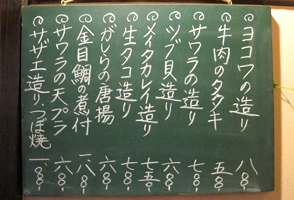 ヨコワの造り 八〇〇
牛肉のタタキ 五〇〇
サワラの造り 七〇〇
ツブ貝造り 六〇〇
メイタカレイ造り 七五〇
生タコ造り 七〇〇
がしらの唐揚 六〇〇
金目鯛の煮付 一八〇〇
サワラの天プラ 六〇〇
サザエ造り つぼ焼 一〇〇〇